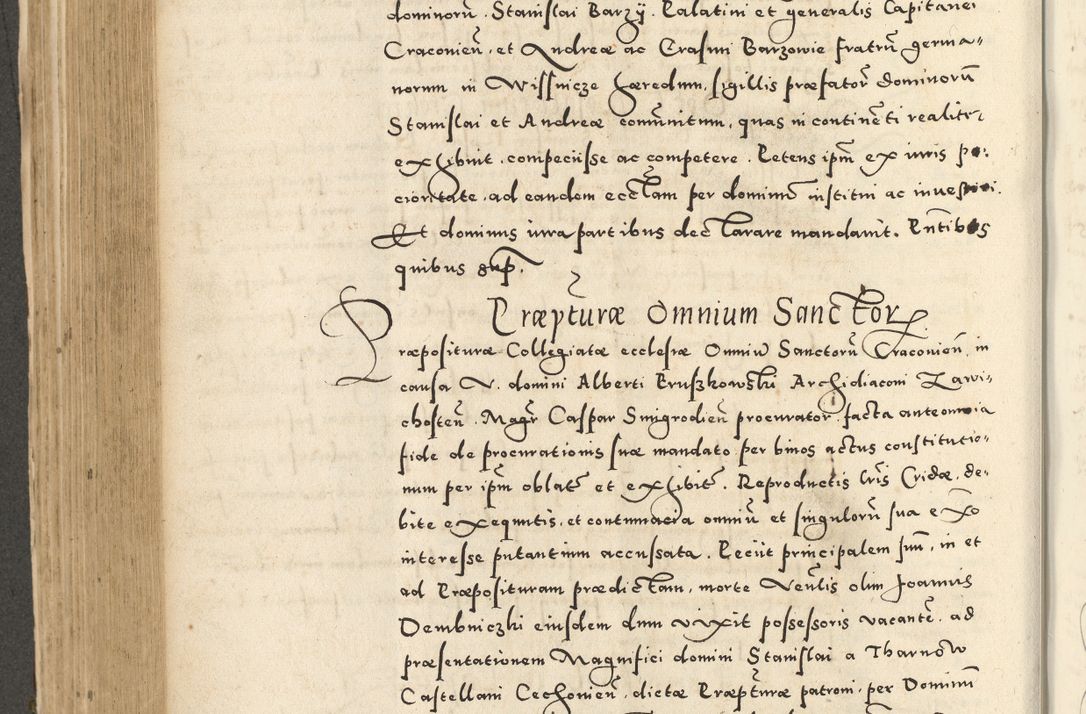 dominorū. Stanislai Barzÿ. Palatini et generalis Capitanei
Craconień, et Andreæ ac Erasmi Barzowie fratrū germa-
norum in Wissnicze hæredum, sigillis præfator̄ dominorū
Stanislai et Andreæ com̄unitum, quas in continēti realiter
exhibuit, competiisse ac competere. Petens ip̄m ex iuris po-
cioritate, ad eandem eccl̄am per dominū institui ac inuestiri.
Et dominus iura partibus declarare mandauit. Pn̄tibus
quibus sup.
Præpturæ Omnium Sanctor
Præpositure Collegiatæ ecclesiæ Omniū Sanctorū Craconień, in
causa V. domini Alberti Kruszkowski Archidiaconi Zawi-
chosteń. Magr̄ Caspar Smigrodień procurator, facta anteomnia
fide de procurationis suæ mandato per binos actus constitutio-
num per ip̄m oblat̄ et exhibit̄. Reproductis Lr̄is Cridæ, de-
bite exequutis, et contumacia omniū et singulorū sua ex̄o
interesse putantium accussata. Peciit principalem suū, in et
ad Præposituram prædictam, morte Veñlis olim Joannis
Dembniczki eiusdem dum vixit possessoris vacantē, ad
præsentationem Magnifici domini Stanislai a Tharnow
Castellani Cechonień, dictæ Præpturæ patroni, per Dominū